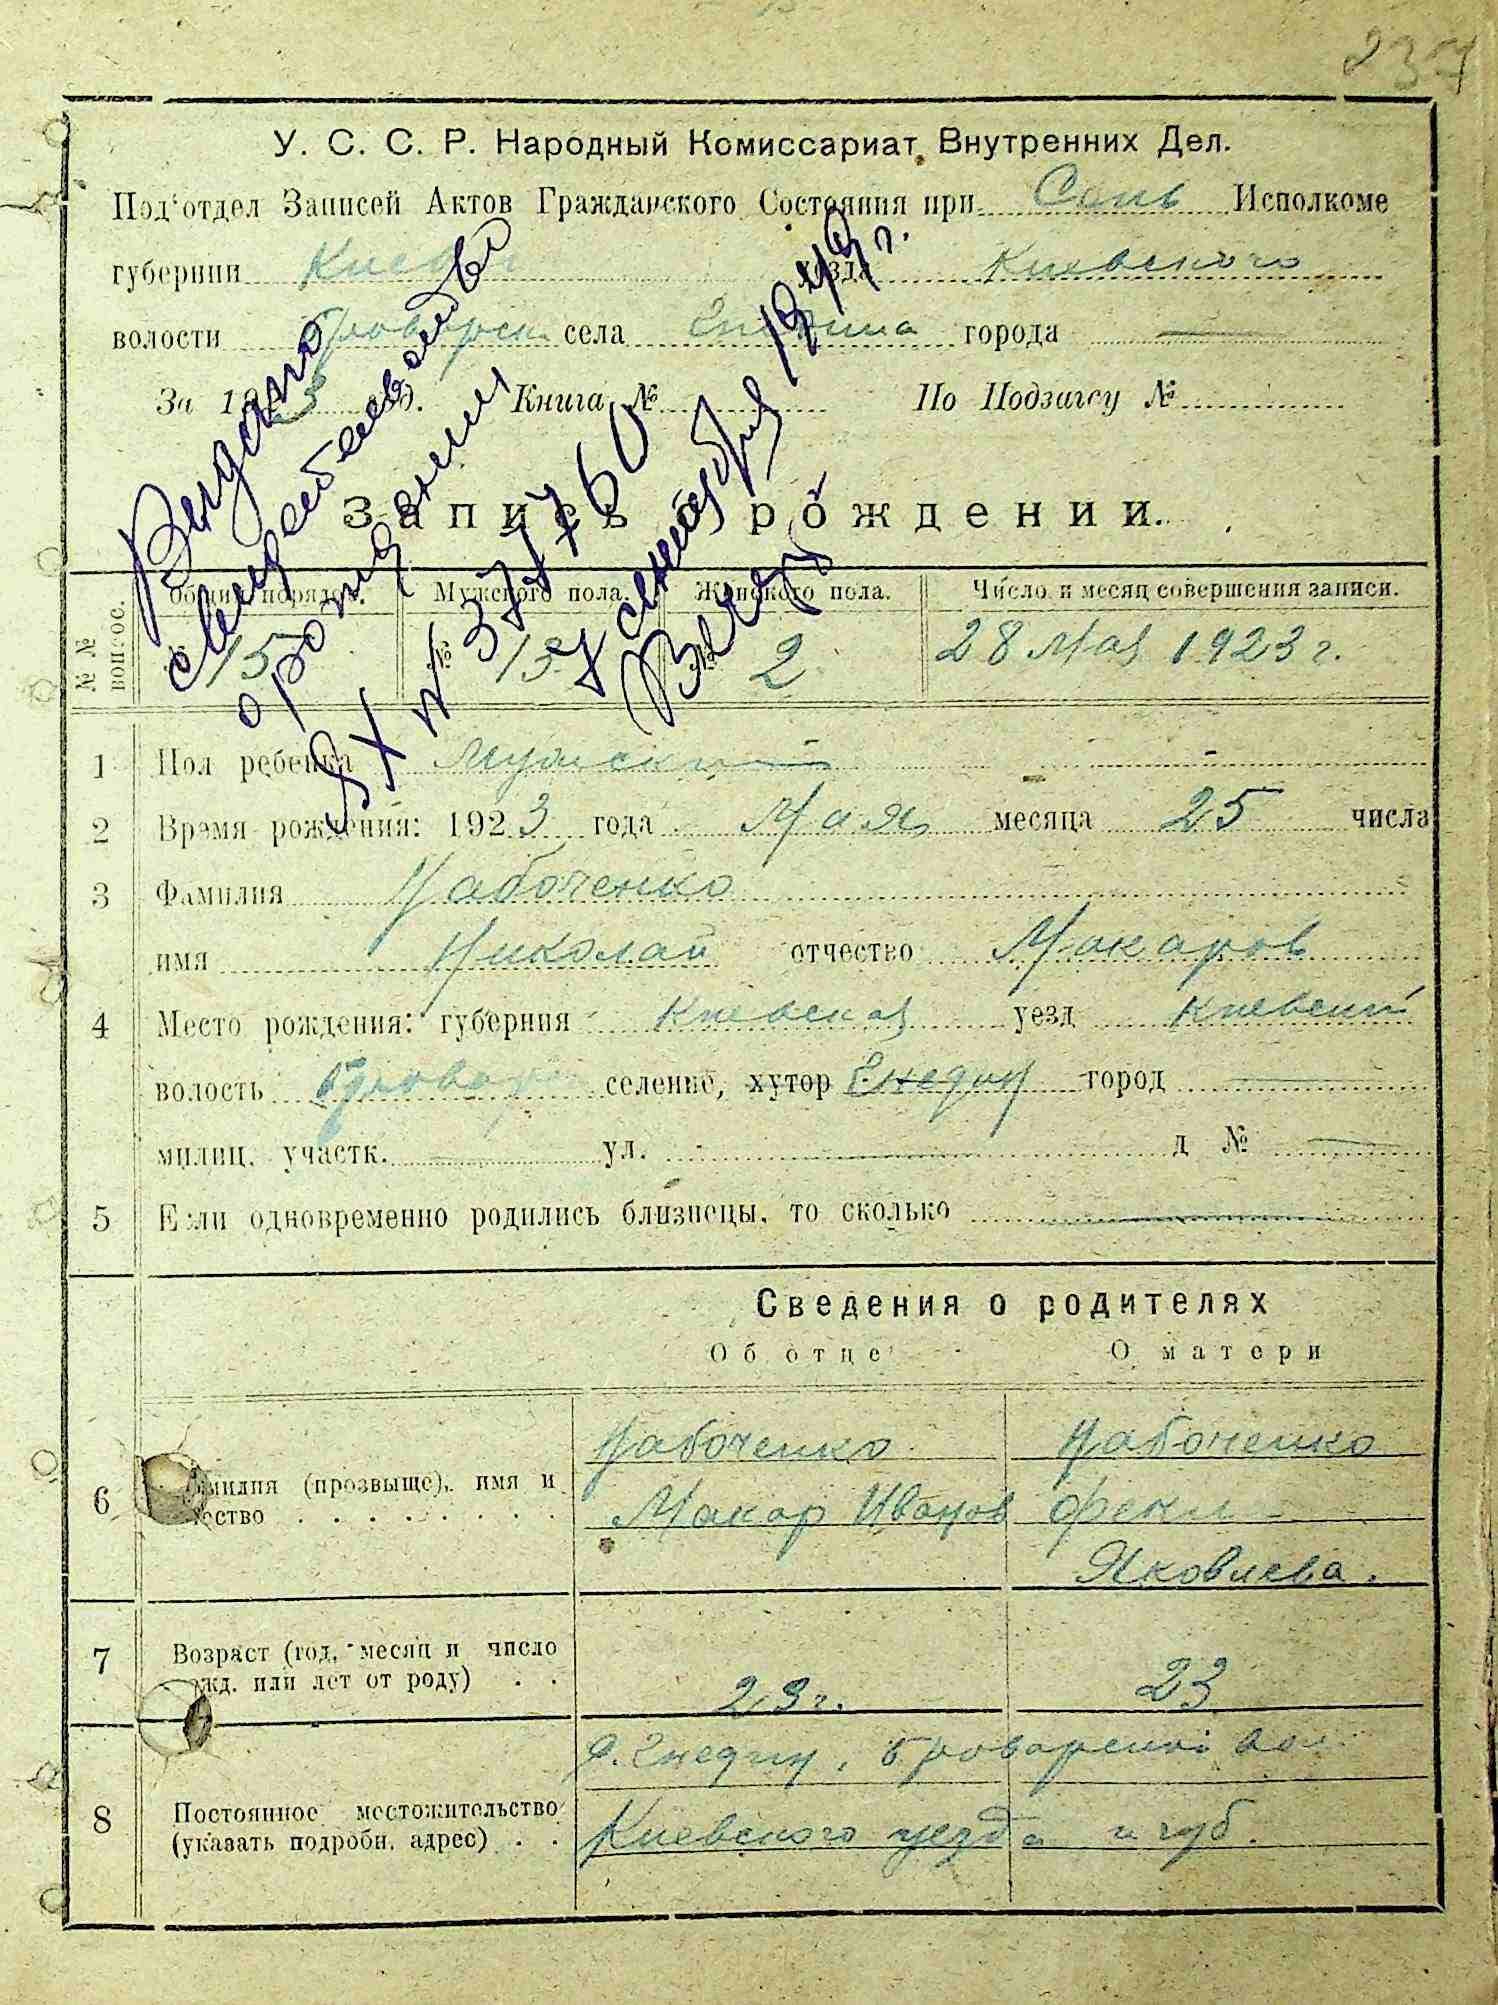 237
У. С. С. Р. Народный Комиссариат Внутренних Дел.
Под'отдел Записей Актов Гражданского Состояния при Сель Исполкоме
губернии Киевск уезда Киевского
волости Броварск села города —
За 1923 г. Книга № По Подзагсу №
Запись о рождении.
Выдано
свидетельство
о рождении
ЯХ № 371760
7 сентября 1949 г.
№№ вопрос.
Общий порядок. Мужского пола. Женского пола. Число и месяц совершения записи.
15 № 13 № 2 28 Мая 1923 г.
1 Пол ребенка Мужской
2 Время рождения: 1923 года Мая месяца 25 числа
3 Фамилия Набоченко
имя Николай отчество Макаров
4 Место рождения: губерния Киевская уезд Киевский
волость Бровар селение, хутор город —
милиц. участк. — ул. — д № —
5 Если одновременно родились близнецы, то сколько —
Сведения о родителях
Об отце О матери
6 Фамилия (прозвыще), имя и отчество
Набоченко Набоченко
Макар Иванов Фекл
Яковлева.
7 Возраст (год, месяц и число рожд. или лет от роду) . .
23 г. 23
8 Постоянное местожительство (указать подробн. адрес) . .
Броварской вол.
Киевского уезда и губ.